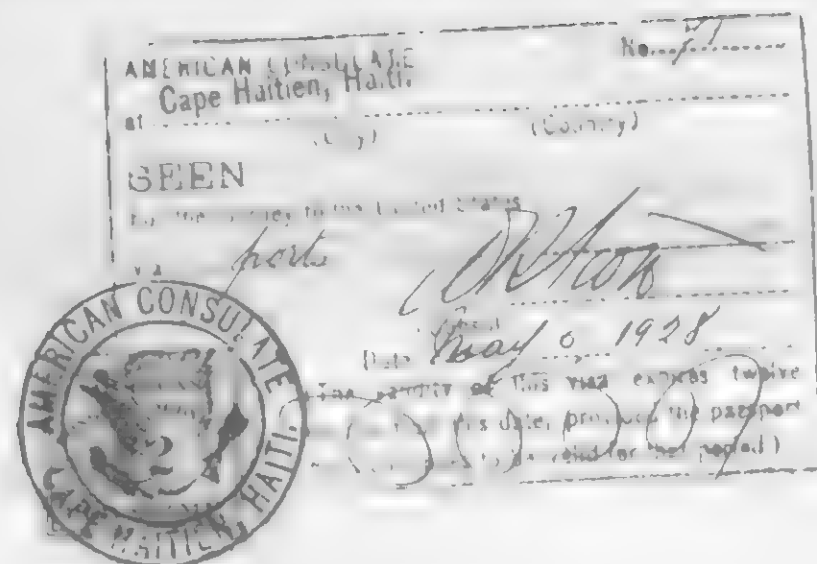 AMERICAN CONSULATE
No.
Cape Haitien, Haiti.
at
(City) (Country)
SEEN
For the journey to the United States
via ports
Date May 6 1928
(The validity of this visa expires twelve
this date, provided the passport
to be valid for that period.)
AMERICAN CONSULATE
CAPE HAITIEN, HAITI.